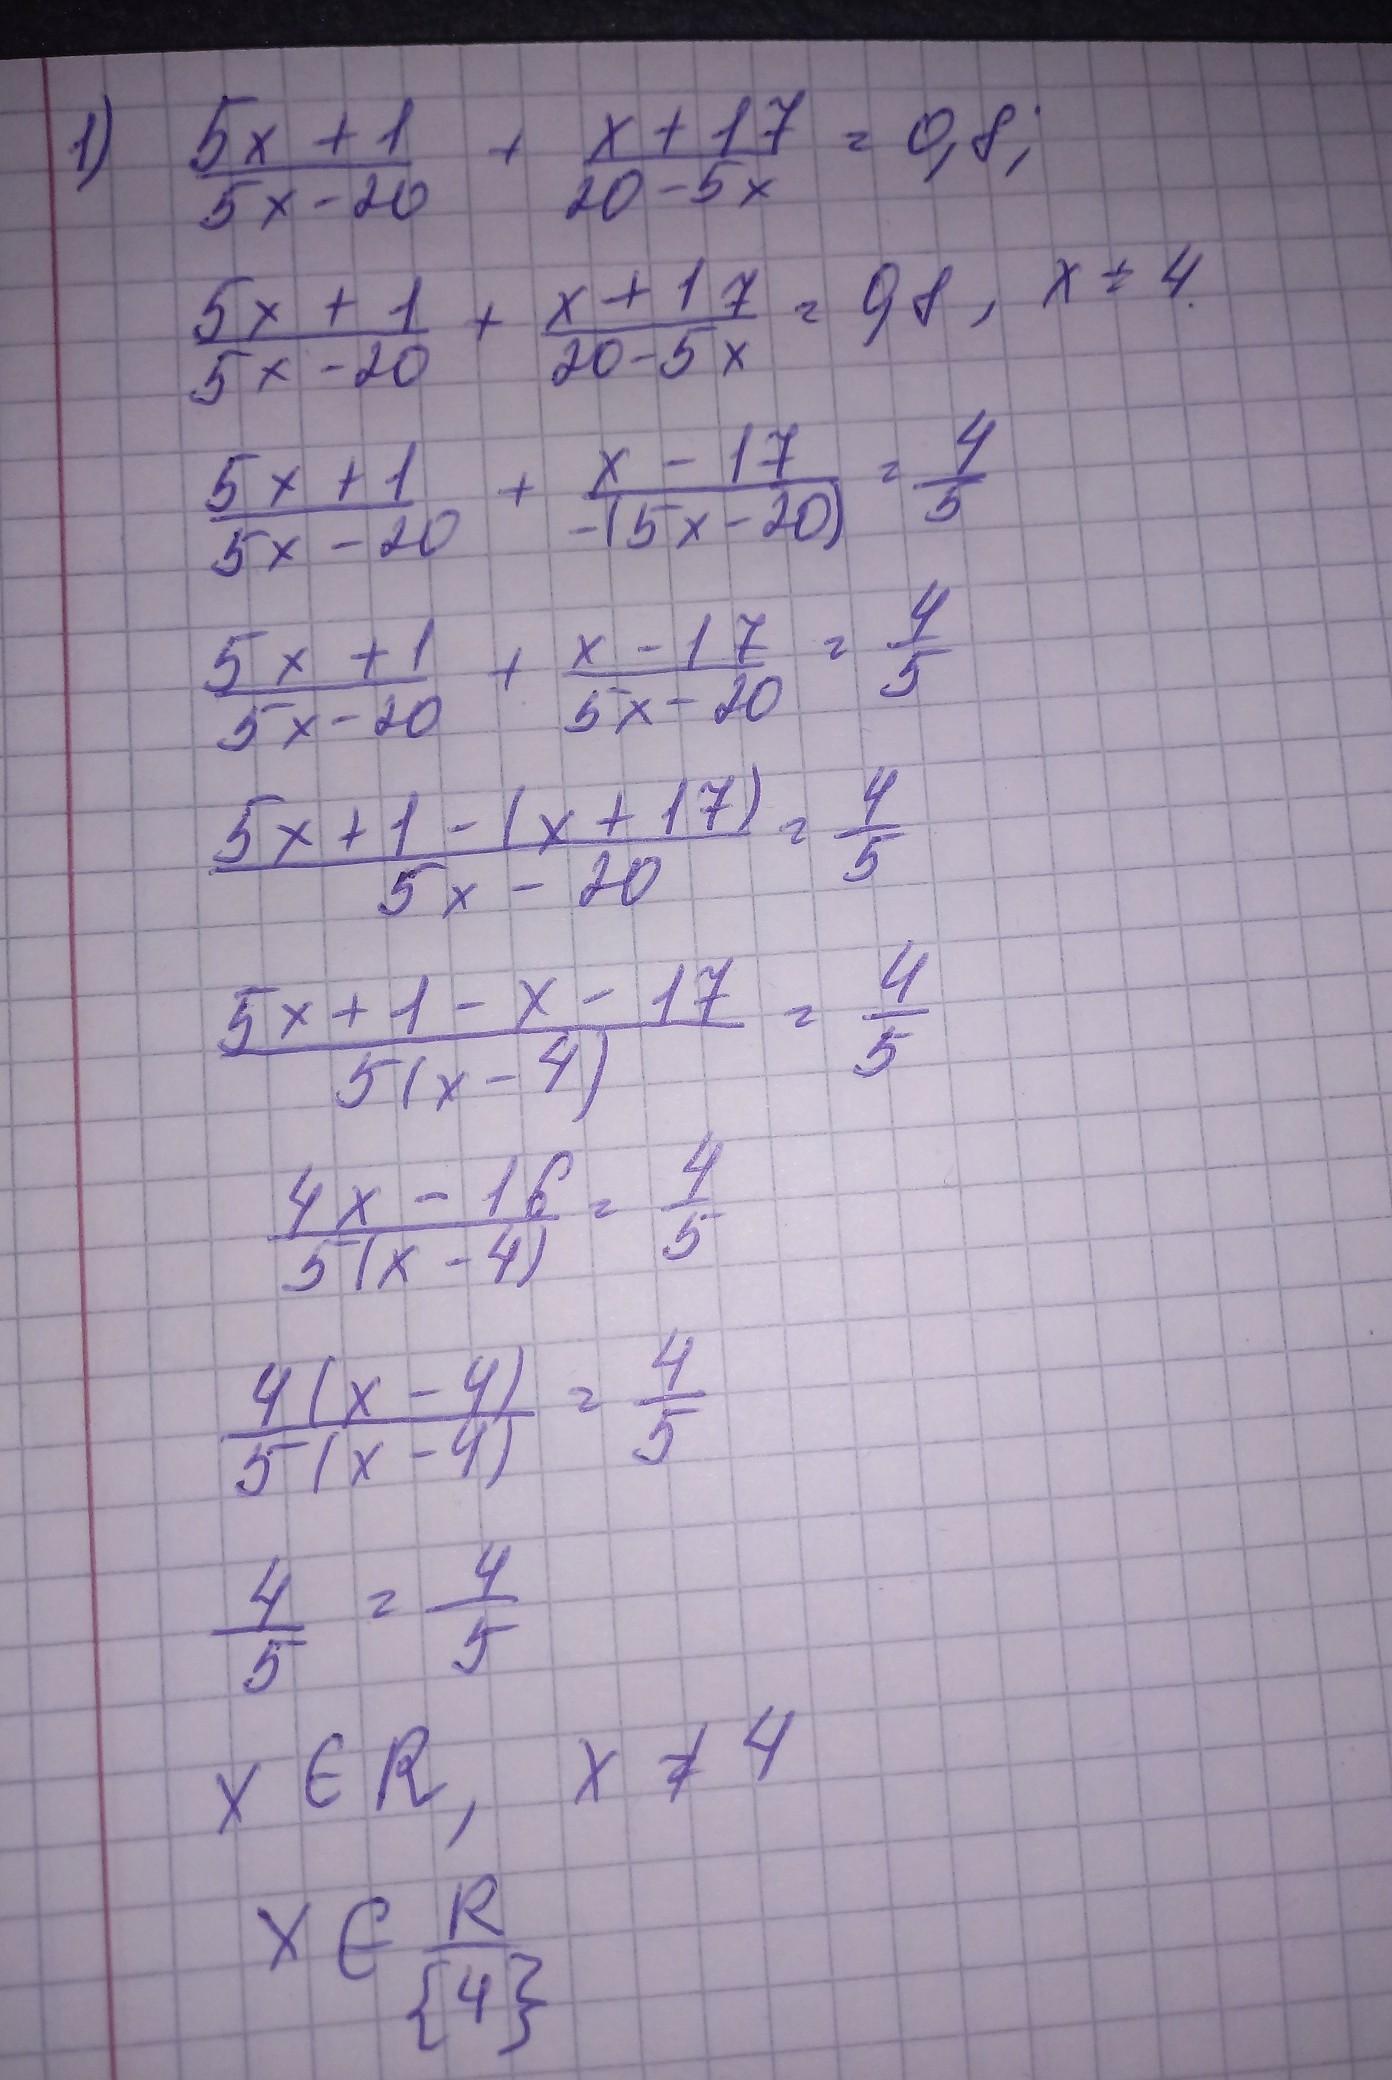 1) (5x + 1)/(5x - 20) + (x + 17)/(20 - 5x) = 0,8;
(5x + 1)/(5x - 20) + (x + 17)/(20 - 5x) = 0,8, x ≠ 4.
(5x + 1)/(5x - 20) + (x - 17)/(-(5x - 20)) = 4/5
(5x + 1)/(5x - 20) + (x - 17)/(5x - 20) = 4/5
(5x + 1 - (x + 17))/(5x - 20) = 4/5
(5x + 1 - x - 17)/(5(x - 4)) = 4/5
(4x - 16)/(5(x - 4)) = 4/5
(4(x - 4))/(5(x - 4)) = 4/5
4/5 = 4/5
x ∈ R, x ≠ 4
x ∈ R/{4}